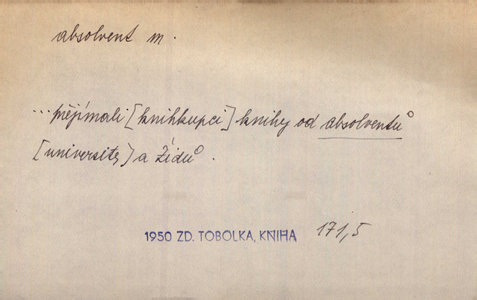 absolvent m.
... přejímali [knihkupci] knihy od absolventů
[university] a židů.
1950 ZD. TOBOLKA, KNIHA 171,5